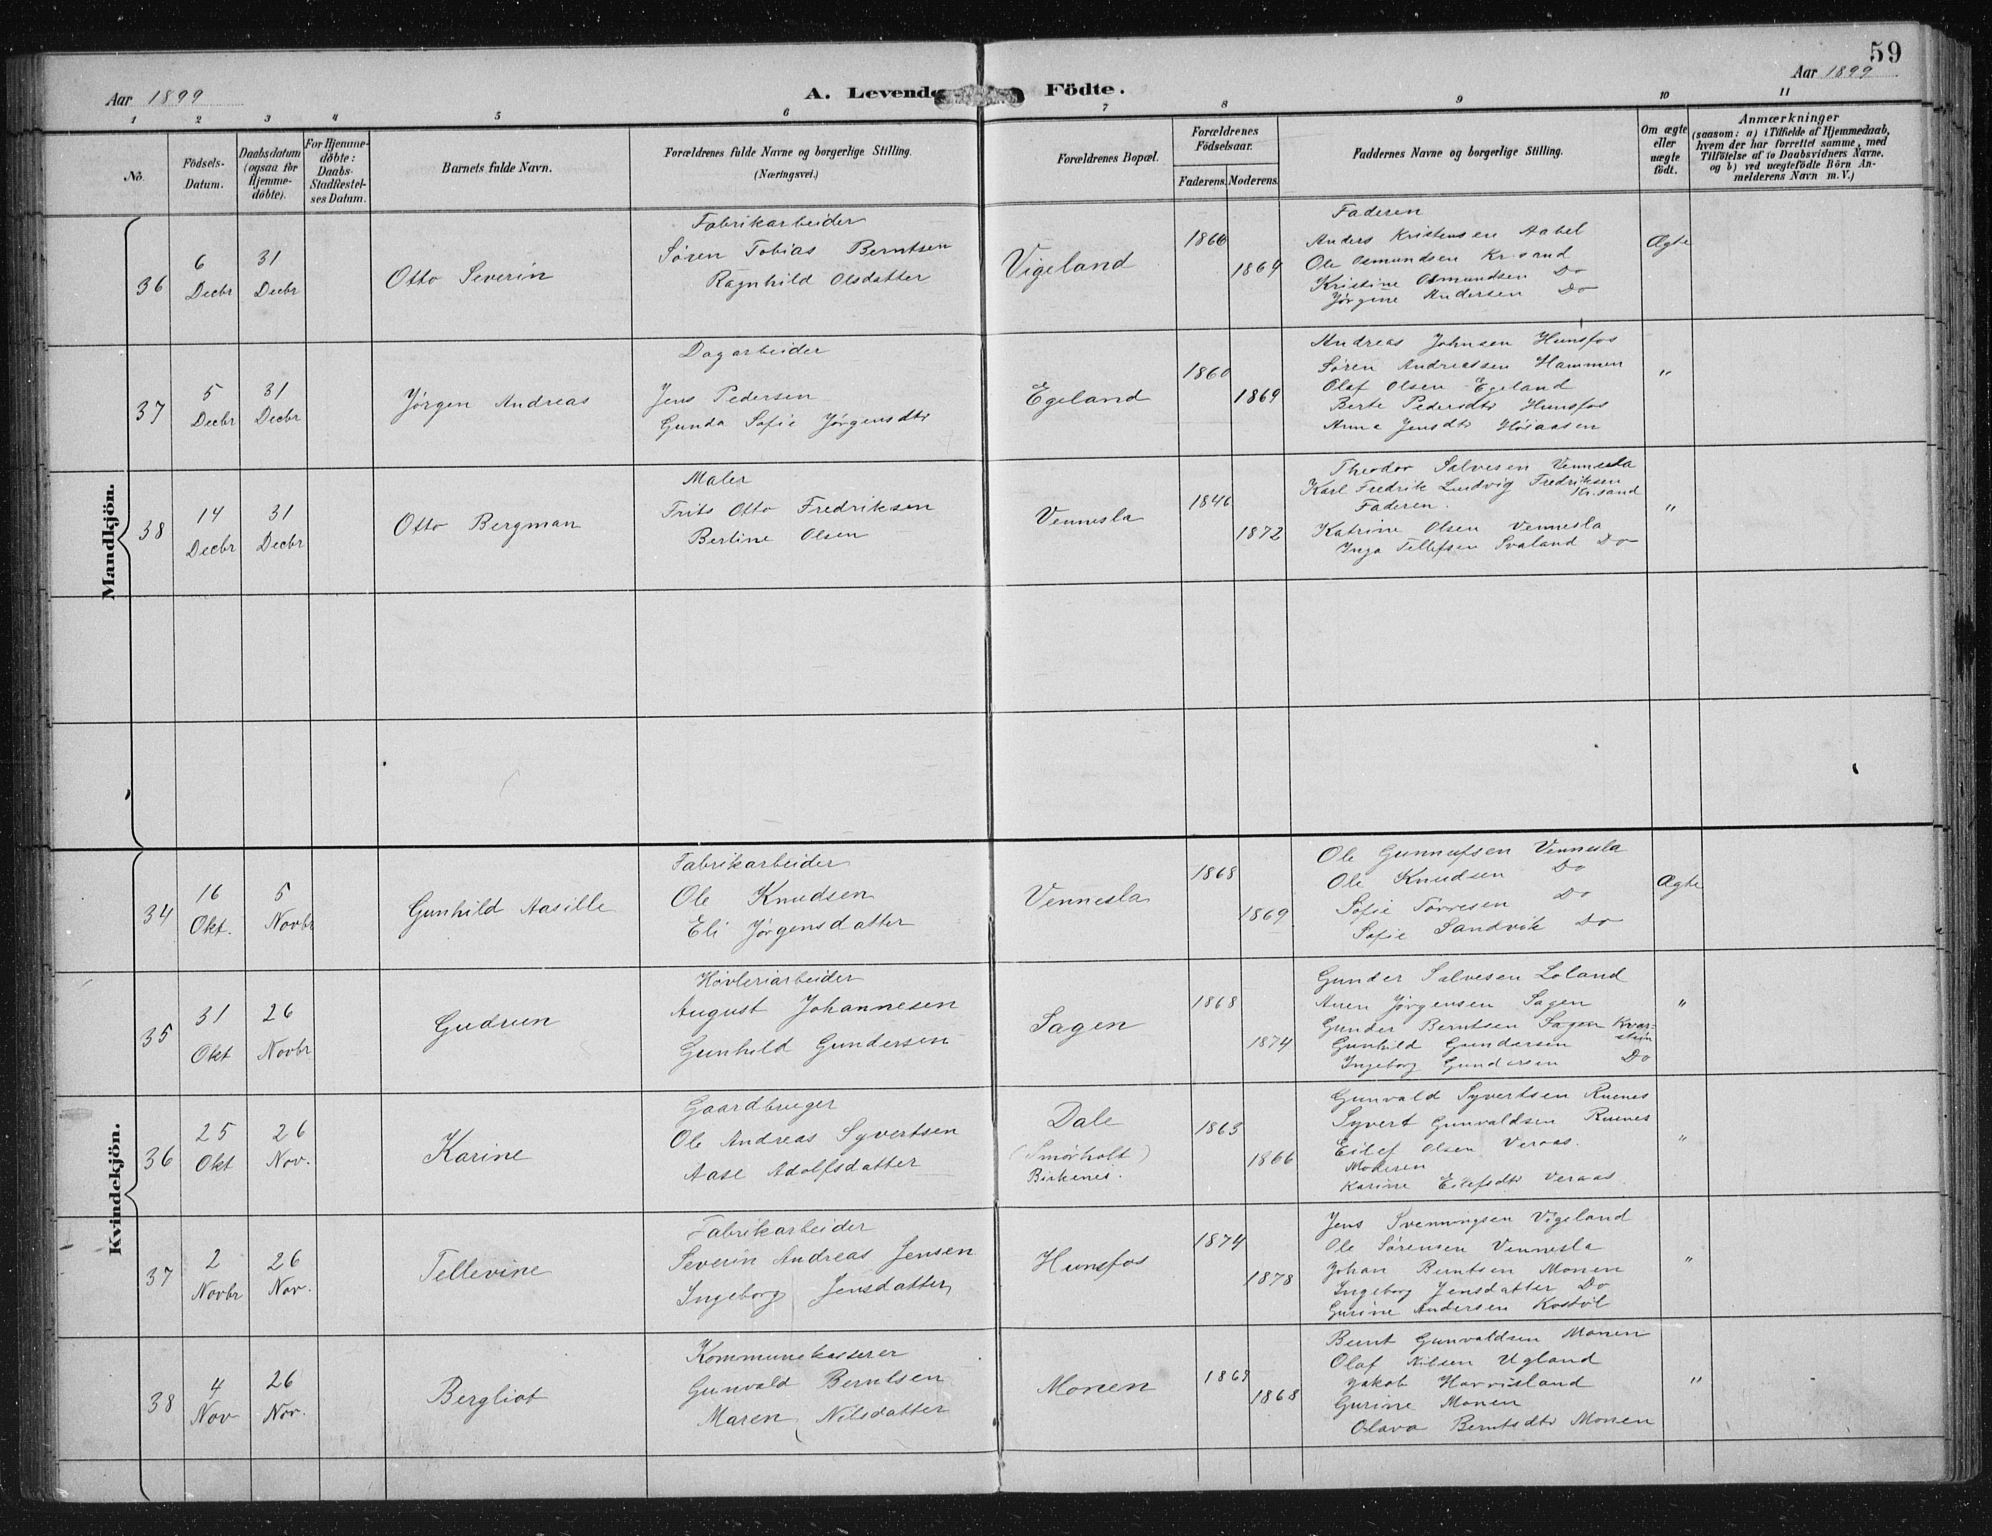 59
Aar 1899
A. Levende Födte.
Aar 1899
1 2 3 4 5 6 7 8 9 10 11
No.
Födsels-Datum.
Daabsdatum (ogsaa för Hjemme-döbte).
For Hjemme-döbte: Daabs-Stadfæstel-ses Datum.
Barnets fulde Navn.
Forældrenes fulde Navne og borgerlige Stilling.
(Næringsvei.)
Forældrenes Bopæl.
Forældrenes Födselsaar.
Faderens. Moderens.
Faddernes Navne og borgerlige Stilling.
Om ægte eller uægte födt.
Anmærkninger
(saasom: a) i Tilfælde af Hjemmedaab, hvem der har forrettet samme, med Tilföielse af to Daabsvidners Navne. og b) ved uægtefödte Börn An-melderens Navn m. V.)
Mandkjön.
36
6 Decbr
31 Decbr
Otto Severin
Fabrikarbeider
Søren Tobias Berntsen
Ragnhild Olsdatter
Vigeland
1866
1864
Faderen
Anders Kristensen Aabel
Ole Osmundsen Kr.sand
Kristine Osmundsen Do
Jørgine Andersen Do
Ægte
37
5 Decbr
31 Decbr
Jørgen Andreas
Dagarbeider
Jens Pedersen
Gunda Sofie Jørgensdtr
Egeland
1860
1869
Andreas Johnsen Hunsfos
Søren Andreassen Hammen
Olaf Olsen Egeland
Berte Pedersdtr Hunsfos
Anna Jensdtr Høiaasen
"
38
14 Decbr
31 Decbr
Otto Bergman
Maler
Frits Otto Fredriksen
Bertine Olsen
Vennesla
1846
1872
Theodor Salvesen Vennesla
Karl Fredrik Ludvig Fredriksen Kr.sand
Faderen.
Katrine Olsen Vennesla
Inga Tellefsen Svaland Do
"
Kvindekjön.
34
16 Okt.
5 Novbr
Gunhild Aasille
Fabrikarbeider
Ole Knudsen
Eli Jørgensdatter
Vennesla
1868
1869
Ole Gunnufsen Vennesla
Ole Knudsen Do
Sofie Tørresen Do
Sofie Sandvik Do
Ægte
35
31 Okt
26 Novbr
Gudrun
Høvleriarbeider
August Johannesen
Gunhild Gundersen
Sagen
1868
1874
Gunder Salvesen Loland
Anen Jørgensen Sagen
Gunder Berntsen Sagen Kvar-stein
Gunhild Gundersen
Ingeborg Gundersen Do
"
36
25 Okt
26 Nov.
Karine
Gaardbruger
Ole Andreas Syvertsen
Aase Adolfsdatter
Dale
(Smørholt)
Birkenes.
1863
1866
Gunvald Syvertsen Ruenes
Syvert Gunvaldsen Ruenes
Eilef Olsen Veraas.
Moderen
Karine Eilefsdtr Veraas.
"
37
2 Novbr
26 Nov.
Tellevine
Fabrikarbeider
Severin Andreas Jensen
Ingeborg Jensdatter
Hunsfos
1874
1878
Jens Svenningsen Vigeland
Ole Sørensen Vennesla
Johan Berntsen Monen
Ingeborg Jensdatter Do
Gurine Andersen Kostøl
"
38
4 Nov
26 Nov.
Bergliot
Kommunekasserer
Gunvald Berntsen
Maren Nilsdatter
Monen
1869
1868
Bernt Gunvaldsen Monen
Olaf Nilsen Ugland
Jakob Horrisland
Gurine Monen
Olava Berntsdtr Monen
"